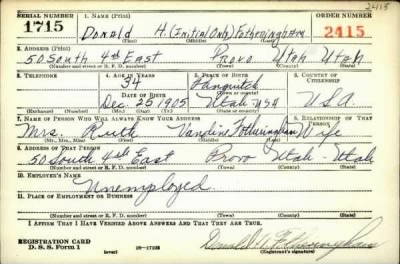 2415
SERIAL NUMBER 1. NAME (Print) ORDER NUMBER
1715 Donald H. (Initial Only) Fotheringham 2415
(First) (Middle) (Last)
2. ADDRESS (Print)
50 South 4th East Provo Utah Utah
(Number and street or R. F. D. number) (Town) (County) (State)
3. TELEPHONE 4. AGE IN YEARS 5. PLACE OF BIRTH 6. COUNTRY OF CITIZENSHIP
34 Panguitch
DATE OF BIRTH (Town or county)
Dec. 25 1905 Utah USA U.S.A.
(Exchange) (Number) (Mo.) (Day) (Yr.) (State or country)
7. NAME OF PERSON WHO WILL ALWAYS KNOW YOUR ADDRESS 8. RELATIONSHIP OF THAT PERSON
Mrs. Ruth Vandine Fotheringham Wife
(Mr., Mrs., Miss) (First) (Middle) (Last)
9. ADDRESS OF THAT PERSON
50 South 4th East Provo Utah - Utah
(Number and street or R. F. D. number) (Town) (County) (State)
10. EMPLOYER'S NAME
Unemployed.
11. PLACE OF EMPLOYMENT OR BUSINESS
(Number and street or R. F. D. number) (Town) (County) (State)
I AFFIRM THAT I HAVE VERIFIED ABOVE ANSWERS AND THAT THEY ARE TRUE.
REGISTRATION CARD
D. S. S. Form 1 (over) 16-17105 Donald H. Fotheringham
(Registrant's signature)